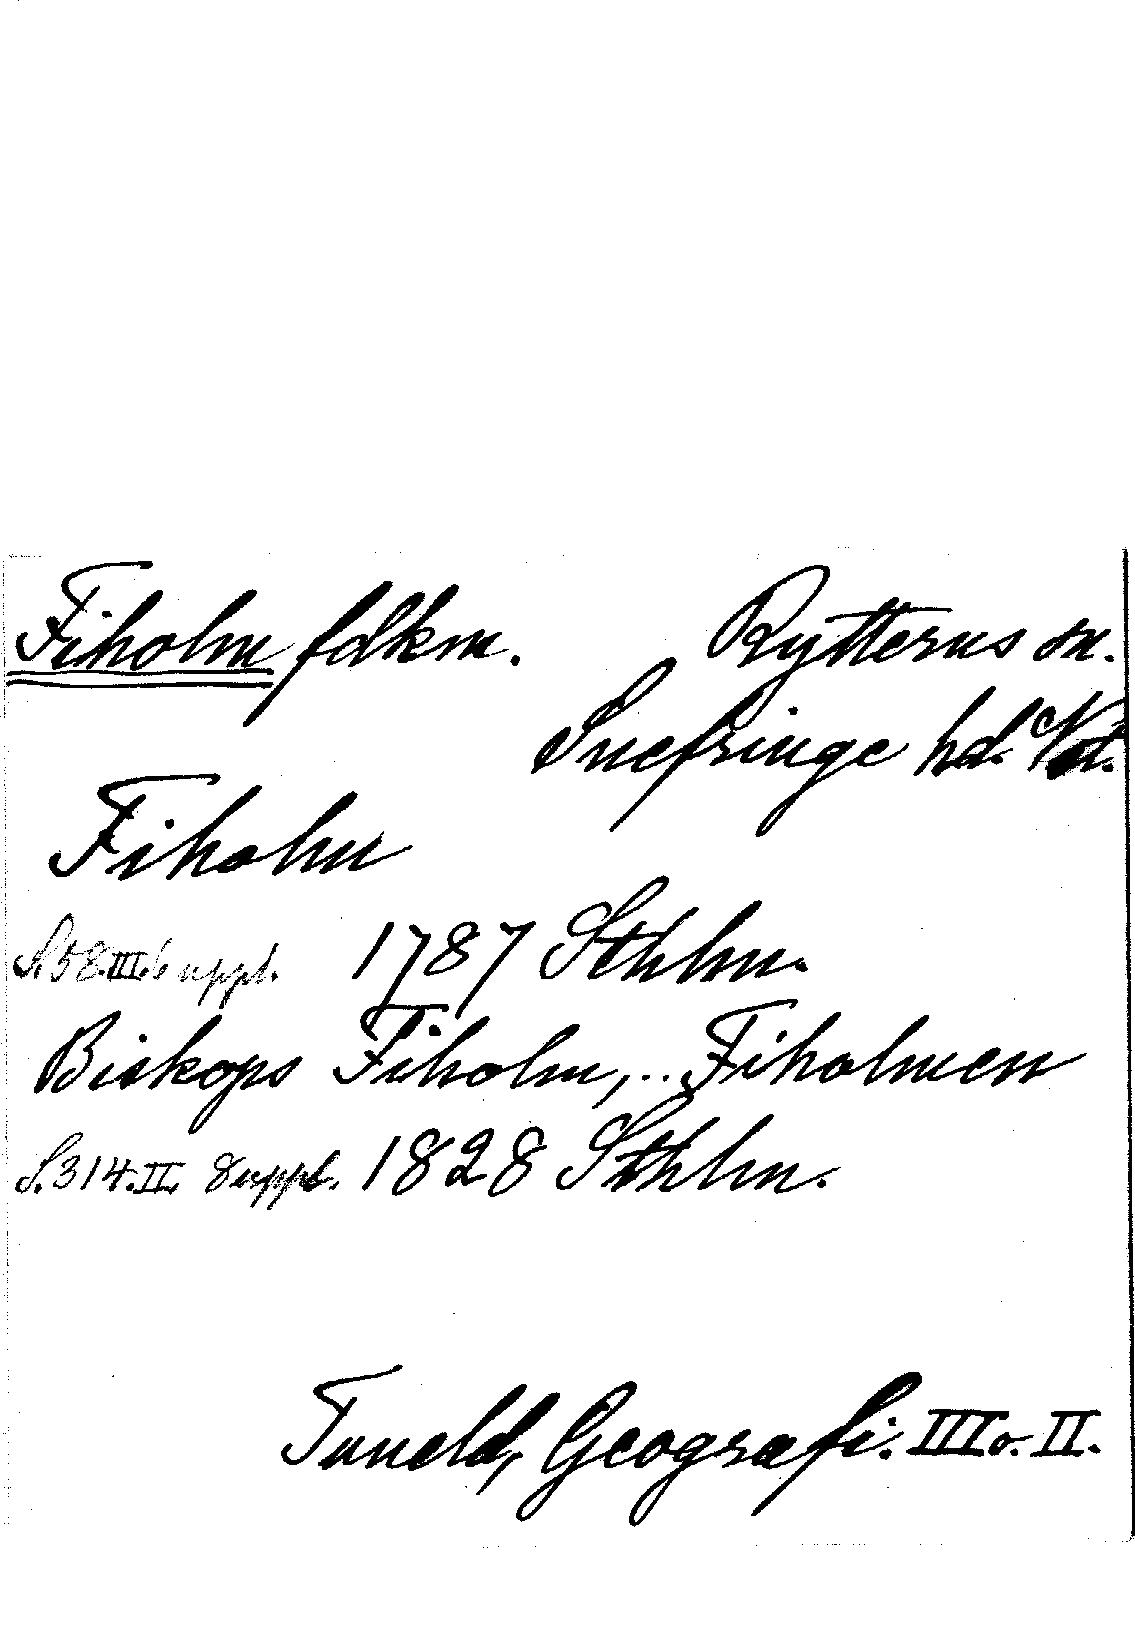 Fiholm fdkm. Rytterns sn.
Snefringe hd. Vstm.
Fiholm
S.58.III. Suppl. 1787 Sthlm.
Biskops Fiholm,... Fiholmen
S.314.II. Suppl. 1828 Sthlm.
Tuneld, Geografi. III o. II.